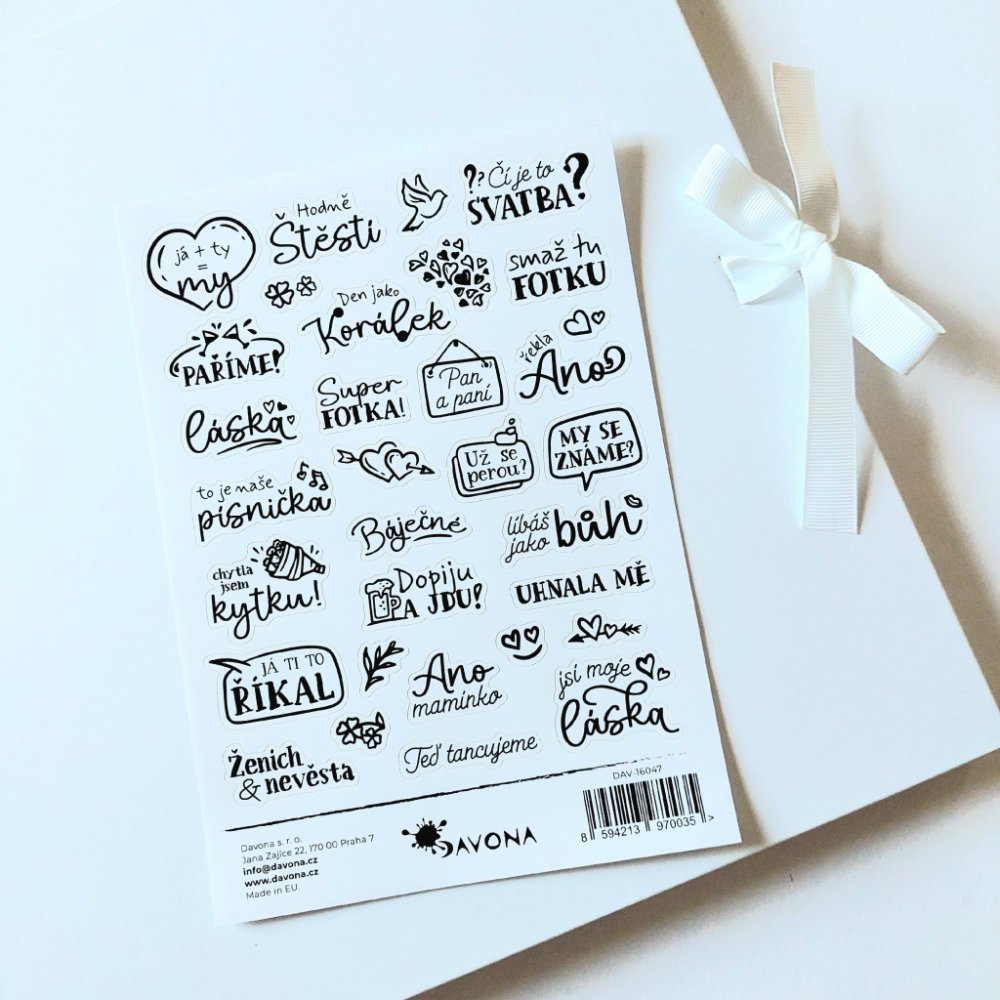 já + ty
=
my
Hodně
Štěstí
?? Čí je to
SVATBA?
Den jako
Korálek
smaž tu
FOTKU
PAŘÍME!
Super
FOTKA!
Pan
a paní
řekla
Ano
láska
Už se
perou?
MY SE
ZNÁME?
to je naše
písnička
Báječné
líbáš
jako bůh
chytla
jsem
kytku!
Dopiju
A JDU!
UHNALA MĚ
JÁ TI TO
ŘÍKAL
Ano
maminko
jsi moje
láska
Ženich
& nevěsta
Teď tancujeme
Davona s. r. o.
Jana Zajíce 22, 170 00 Praha 7
info@davona.cz
www.davona.cz
Made in EU.
DAVONA
DAV-16047
8 594213 970035 >